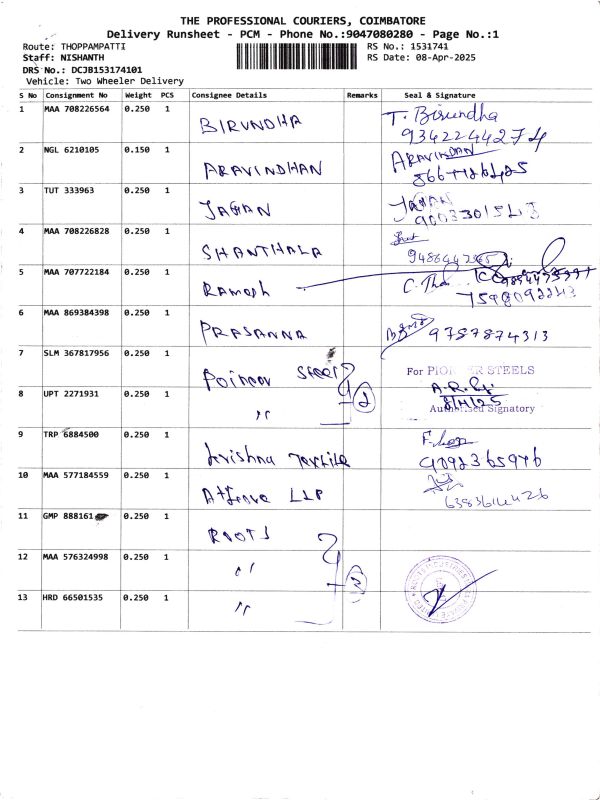 THE PROFESSIONAL COURIERS, COIMBATORE
Delivery Runsheet - PCM - Phone No.:9047080280 - Page No.:1
Route: THOPPAMPATTI RS No.: 1531741
Staff: NISHANTH RS Date: 08-Apr-2025
DRS No.: DCJB153174101
Vehicle: Two Wheeler Delivery
S No Consignment No Weight PCS Consignee Details Remarks Seal & Signature
1 MAA 708226564 0.250 1 BIRUNDHA T. Birundha
9342244274
2 NGL 6210105 0.150 1 ARAVINDHAN ARAVINDAN
3 TUT 333963 0.250 1 JAGAN JAGAN
4 MAA 708226828 0.250 1 SHANTHALA
5 MAA 707722184 0.250 1 Ramesh
7598092243
6 MAA 869384398 0.250 1 PRASANNA 9787874313
7 SLM 367817956 0.250 1 Steel For PIONEER STEELS
8 UPT 2271931 0.250 1 " 2 8/4/25
Authorised Signatory
9 TRP 6884500 0.250 1 Krishna Textile
9092365976
10 MAA 577184559 0.250 1 LLP
11 GMP 888161 0.250 1 ROOTS
12 MAA 576324998 0.250 1 " 3
13 HRD 66501535 0.250 1 "